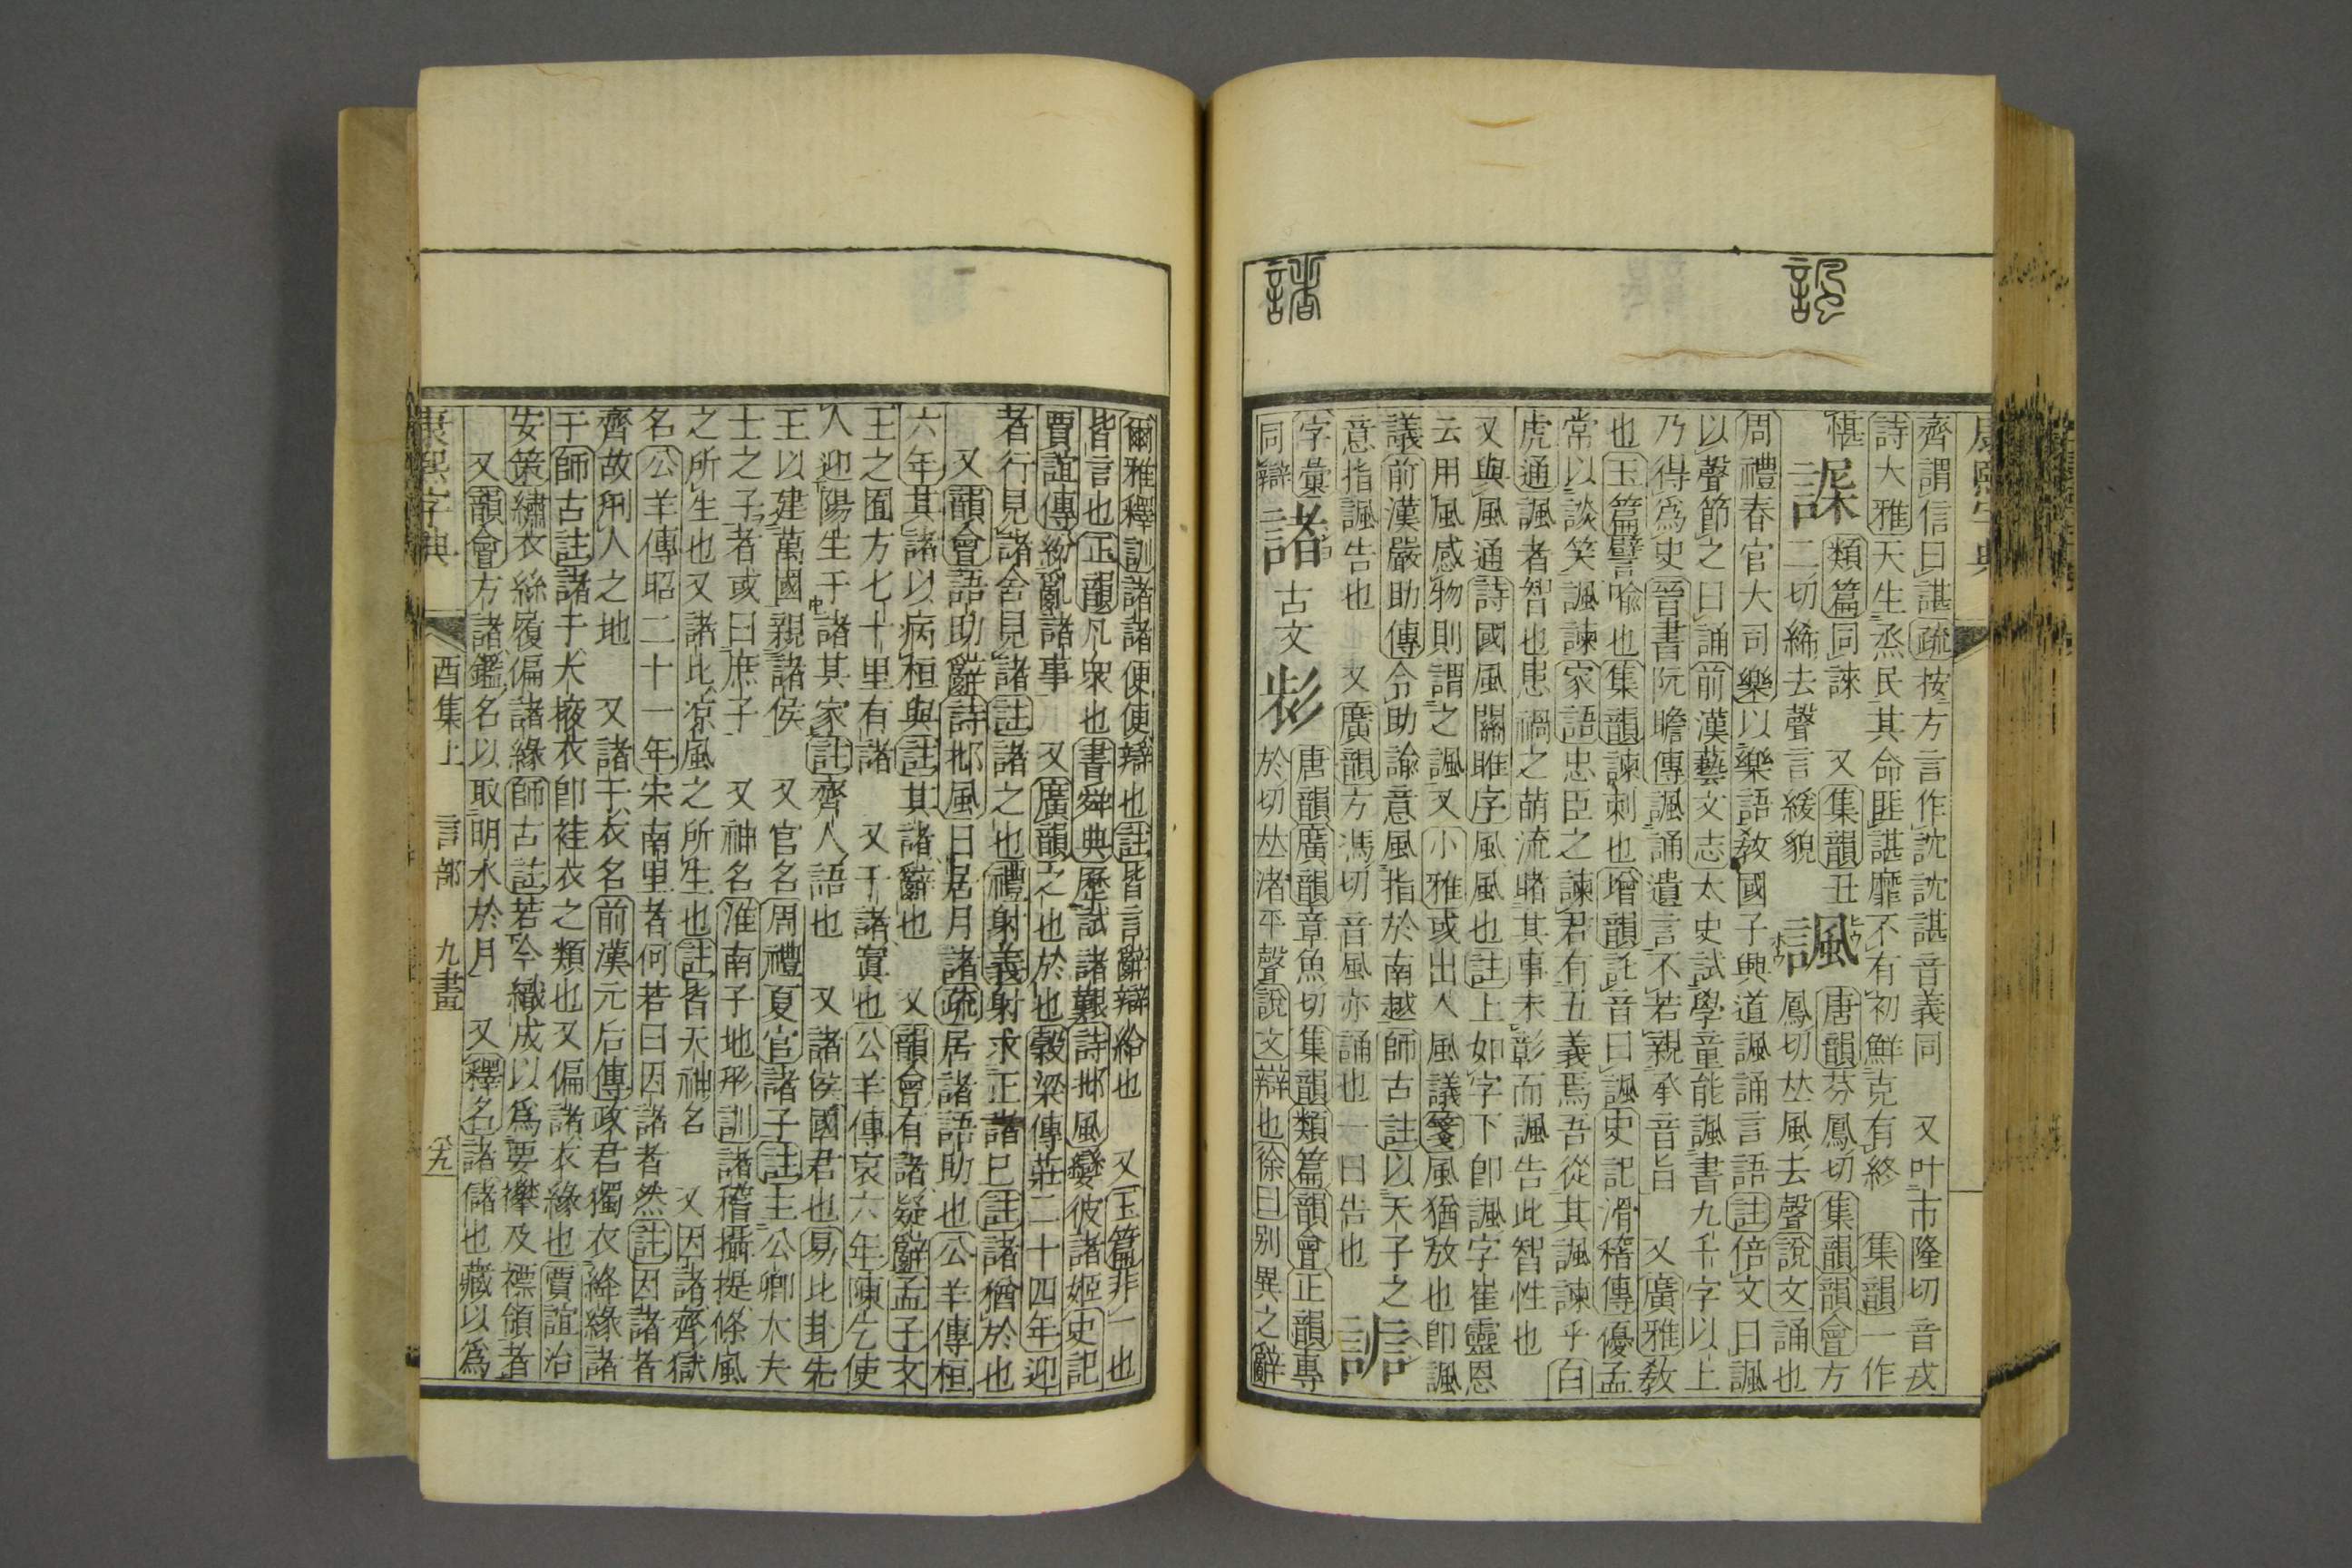 齊謂信曰諶疏按方言作訦訦諶音義同 又叶市隆切音戎
詩大雅天生烝民其命匪諶靡不有初鮮克有終 集韻一作
愖 類篇同諫 又集韻丑
二切絺去聲言緩貌
諷 唐韻芬鳳切集韻韻會方
鳳切𠀤風去聲說文誦也
周禮春官大司樂以樂語敎國子興道諷誦言語註倍文曰諷
以聲節之曰誦前漢藝文志太史試學童能諷書九千字以上
乃得爲史晉書阮瞻傳諷誦遺言不若親承音旨 又廣雅敎
也玉篇譬喩也集韻諫刺也增韻託音曰諷史記滑稽傳優孟
常以談笑諷諫家語忠臣之諫君有五義焉吾從其諷諫乎白
虎通諷者智也患禍之萌流睹其事未彰而諷告此智性也
又與風通詩國風關雎序風風也註上如字下卽諷字崔靈恩
云用風感物則謂之諷又小雅或出入風議箋風猶放也卽諷
議前漢嚴助傳令助諭意風指於南越師古註以天子之
意指諷告也 又廣韻方馮切音風亦誦也一曰告也
字彙
同辯
諸 古文 唐韻廣韻章魚切集韻類篇韻會正韻專
於切𠀤渚平聲說文辯也徐曰別異之辭
爾雅釋訓諸諸便便辯也註皆言辭辯給也 又玉篇非一也
皆言也正韻凡衆也書舜典歷試諸艱詩邶風孌彼諸姬史記
賈誼傳紛亂諸事 又廣韻之也於也穀梁傳莊二十四年迎
者行見諸舍見諸註諸之也禮射義射求正諸己註諸猶於也
又韻會語助辭詩邶風日居月諸疏居諸語助也公羊傳桓
六年其諸以病桓與註其諸辭也 又韻會有諸疑辭孟子文
王之囿方七十里有諸 又于諸寘也公羊傳哀六年陳乞使
人迎陽生于諸其家註齊人語也 又諸侯國君也易比卦先
王以建萬國親諸侯 又官名周禮夏官諸子註主公卿大夫
士之子者或曰庶子 又神名淮南子地形訓諸稽攝提條風
之所生也又諸比凉風之所生也註皆天神名 又因諸齊獄
名公羊傳昭二十一年宋南里者何若曰因諸者然註因諸者
齊故𠛬人之地 又諸于衣名前漢元后傳政君獨衣絳緣諸
于師古註諸于大掖衣卽袿衣之類也又偏諸衣緣也賈誼治
安策繡衣絲履偏諸緣師古註若今織成以爲要襻及褾領者
又韻會方諸鑑名以取明水於月 又釋名諸儲也藏以爲
康熙字典 酉集上 言部 九畫